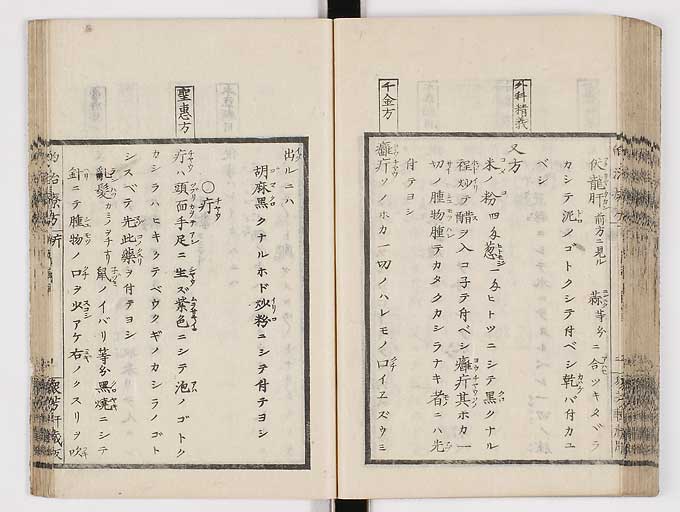 伏龍肝 前方ニ見ル 蒜等分ニ合ツキタヾラ
カシテ泥ノゴトクシテ付ベシ乾バ付カユ
ベシ
外科精義
又方
米ノ粉四匁葱一匁ヒトツニシテ黒クナル
程炒テ醋ヲ入コ子テ付ベシ癰疔其ホカ一
切ノ腫物腫テカタクカシラナキ者ニハ先
付テヨシ
千金方
癰疔ソノホカ一切ノハレモノヽ口イエズウミ
出ルニハ
胡麻黒クナルホド炒粉ニシテ付テヨシ
○疔
聖惠方
疔ハ頭面手足ニ生ズ紫色ニシテ泡ノゴトク
カシラハヒキクテベウクギノカシラノゴト
シスベテ先此藥ヲ付テヨシ
亂髪 鼠ノイバリ等分黒焼ニシテ
針ニテ腫物ノ口ヲ少アケ右ノクスリヲ吹